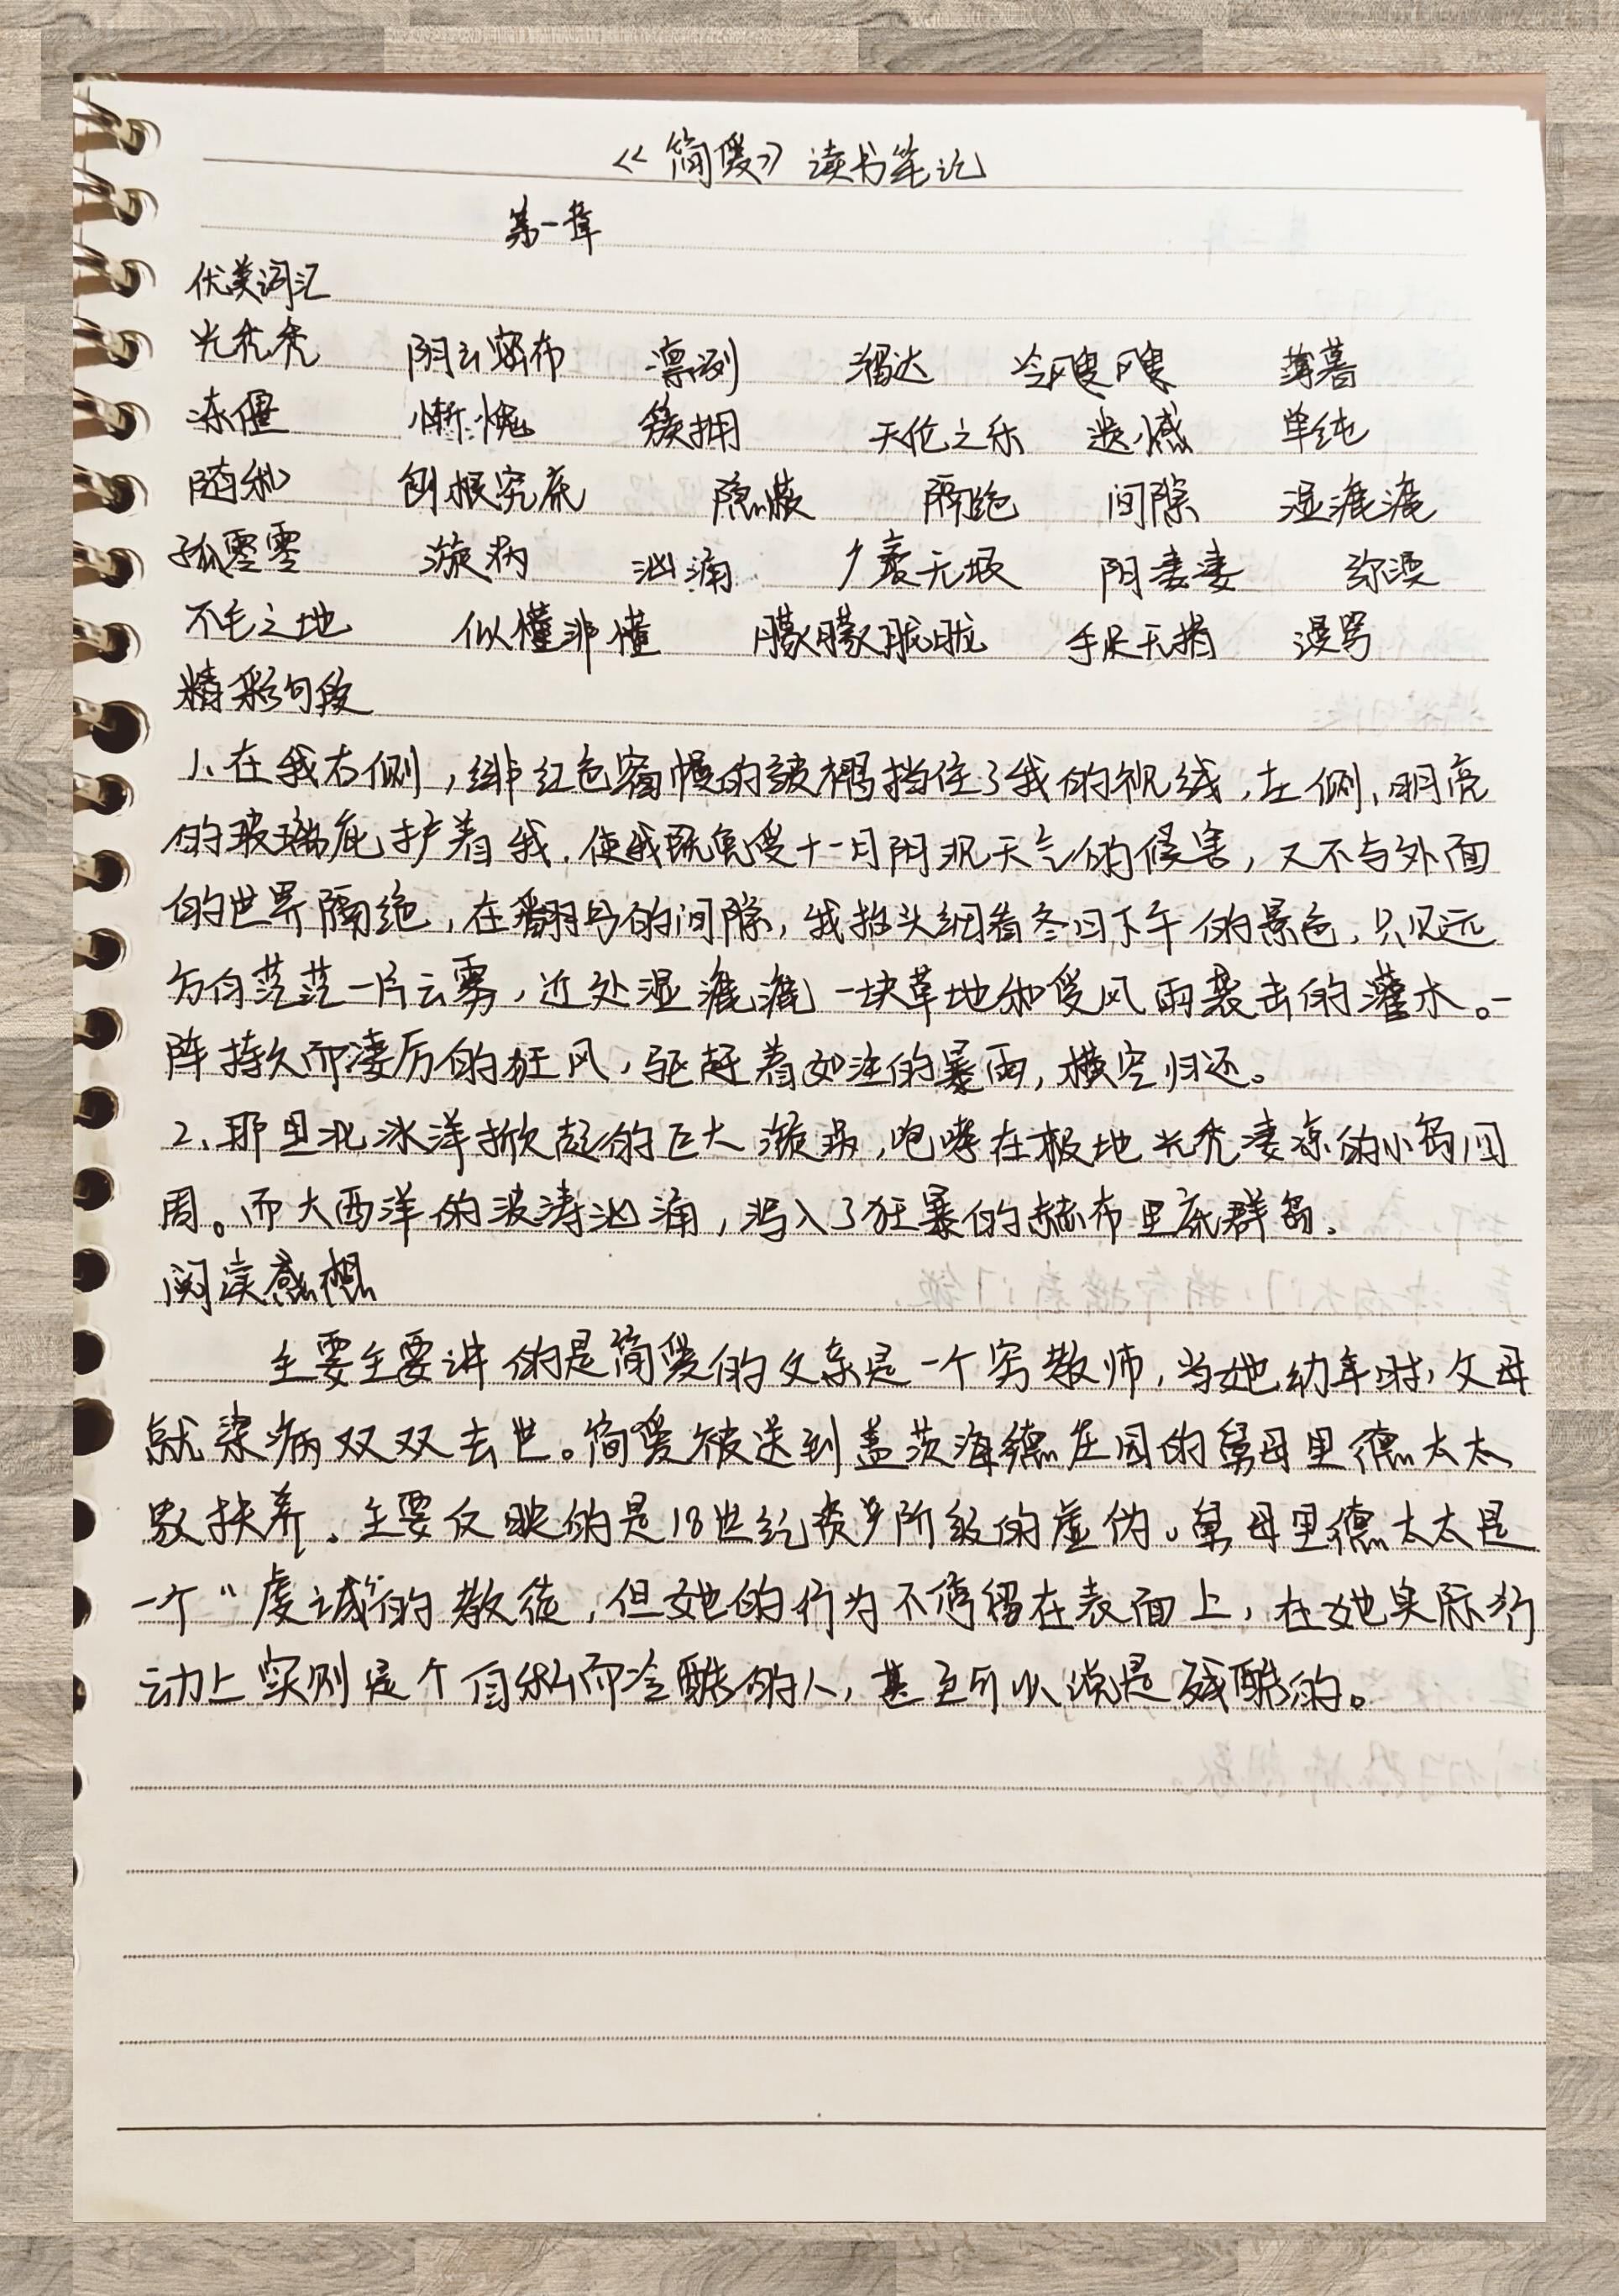 《简爱》读书笔记
第一章
优美词汇
光秃秃 阴云密布 凛冽 溜达 冷飕飕 薄暮
冻僵 惭愧 簇拥 天伦之乐 遗憾 单纯
随和 刨根究底 隐蔽 隔绝 间隙 湿漉漉
孤零零 漩涡 汹涌 广袤无垠 阴凄凄 弥漫
不毛之地 似懂非懂 朦朦胧胧 手足无措 谩骂
精彩句段
1、在我右侧,绯红色窗幔的皱褶挡住了我的视线,左侧、明亮
的玻璃庇护着我,使我既免受十一月阴沉天气的侵害,又不与外面
的世界隔绝,在翻书的间隙,我抬头细看冬日下午的景色,只见远
方白茫茫一片云雾,近处湿漉漉一块草地和受风雨袭击的灌木。一
阵持久而凄厉的狂风,驱赶着如注的暴雨,横空归还。
2、那里北冰洋掀起的巨大漩涡,咆哮在极地光秃凄凉的小岛四
周。而大西洋的波涛汹涌,泻入了狂暴的赫布里底群岛.
阅读感想
主要主要讲的是简爱的父亲是一个穷教师,当她幼年时,父母
就染病双双去世。简爱被送到盖茨海德庄园的舅母里德太太
家扶养.主要反映的是18世纪资产阶级的虚伪。舅母里德太太是
一个“虔诚”的教徒,但她的行为不停留在表面上,在她实际行
动上实则是个自私而冷酷的人,甚至可以说是残酷的。